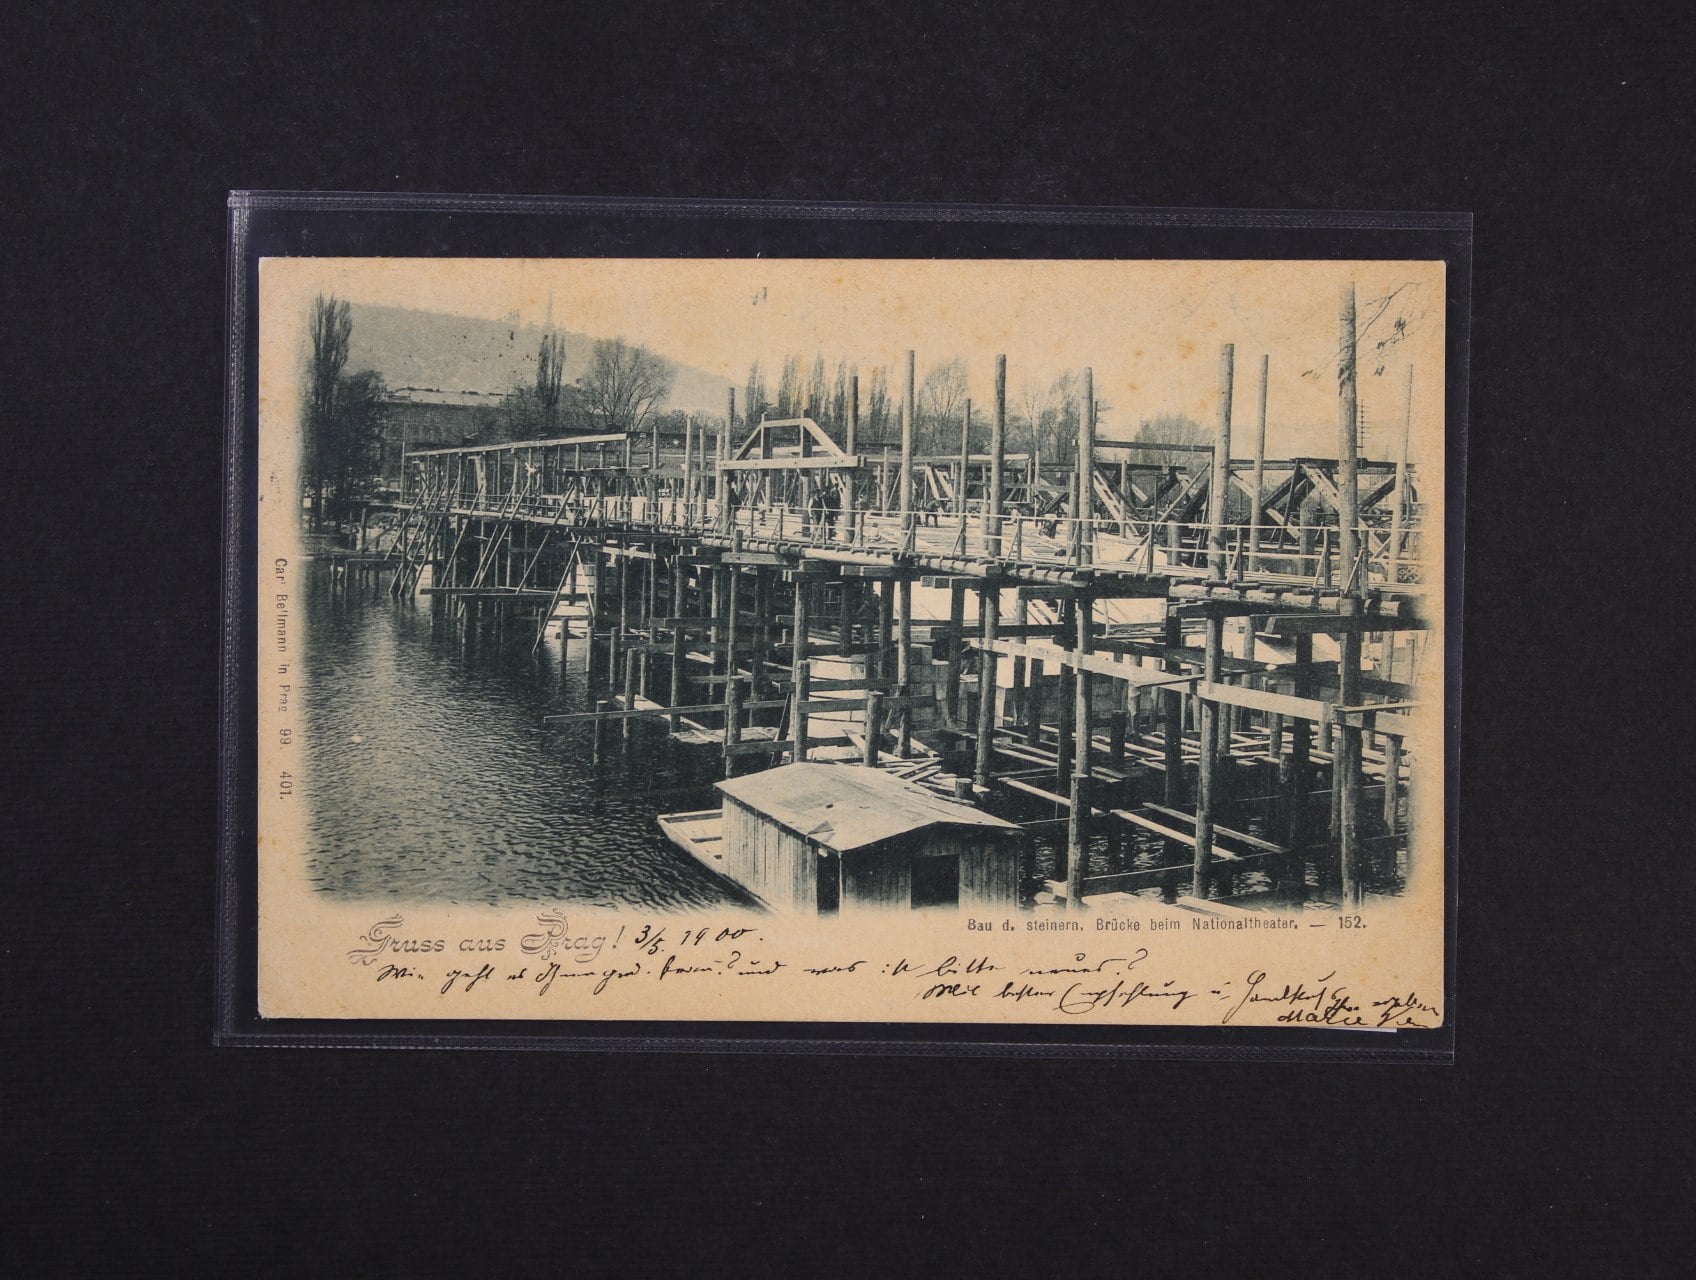 Carl Bellmann in Prag 99. 401.
Bau d. steinern. Brücke beim Nationaltheater. — 152.
Gruss aus Prag! 3/5. 1900.
Wie geht es Ihnen und was ist bitte neues?
Mit bester Empfehlung u. Handkuß
Marie